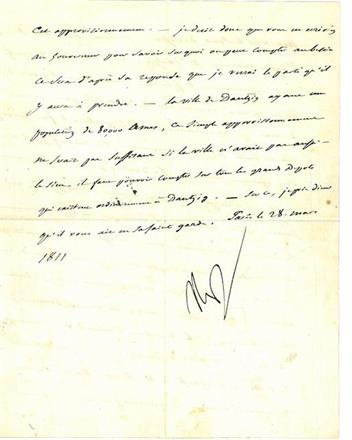 Cet approvisionnement. — je desire donc que vous en ecriviez
au Gouverneur pour savoir sur quoi on peut compter au besoin
ce sera d'après sa reponse que je verrai le parti qu'il
y aura à prendre. — la ville de Dantzig ayant une
population de 80,000 Ames, ce simple approvisionnement
ne serait pas suffisant si la ville n'avait pas aussi
le sien, il faut pouvoir compter sur tous les grands Depots
qui existent ordinairement à Dantzig. — Sur ce, je prie Dieu
qu'il vous ait en sa saint garde. Paris le 28. mars
1811